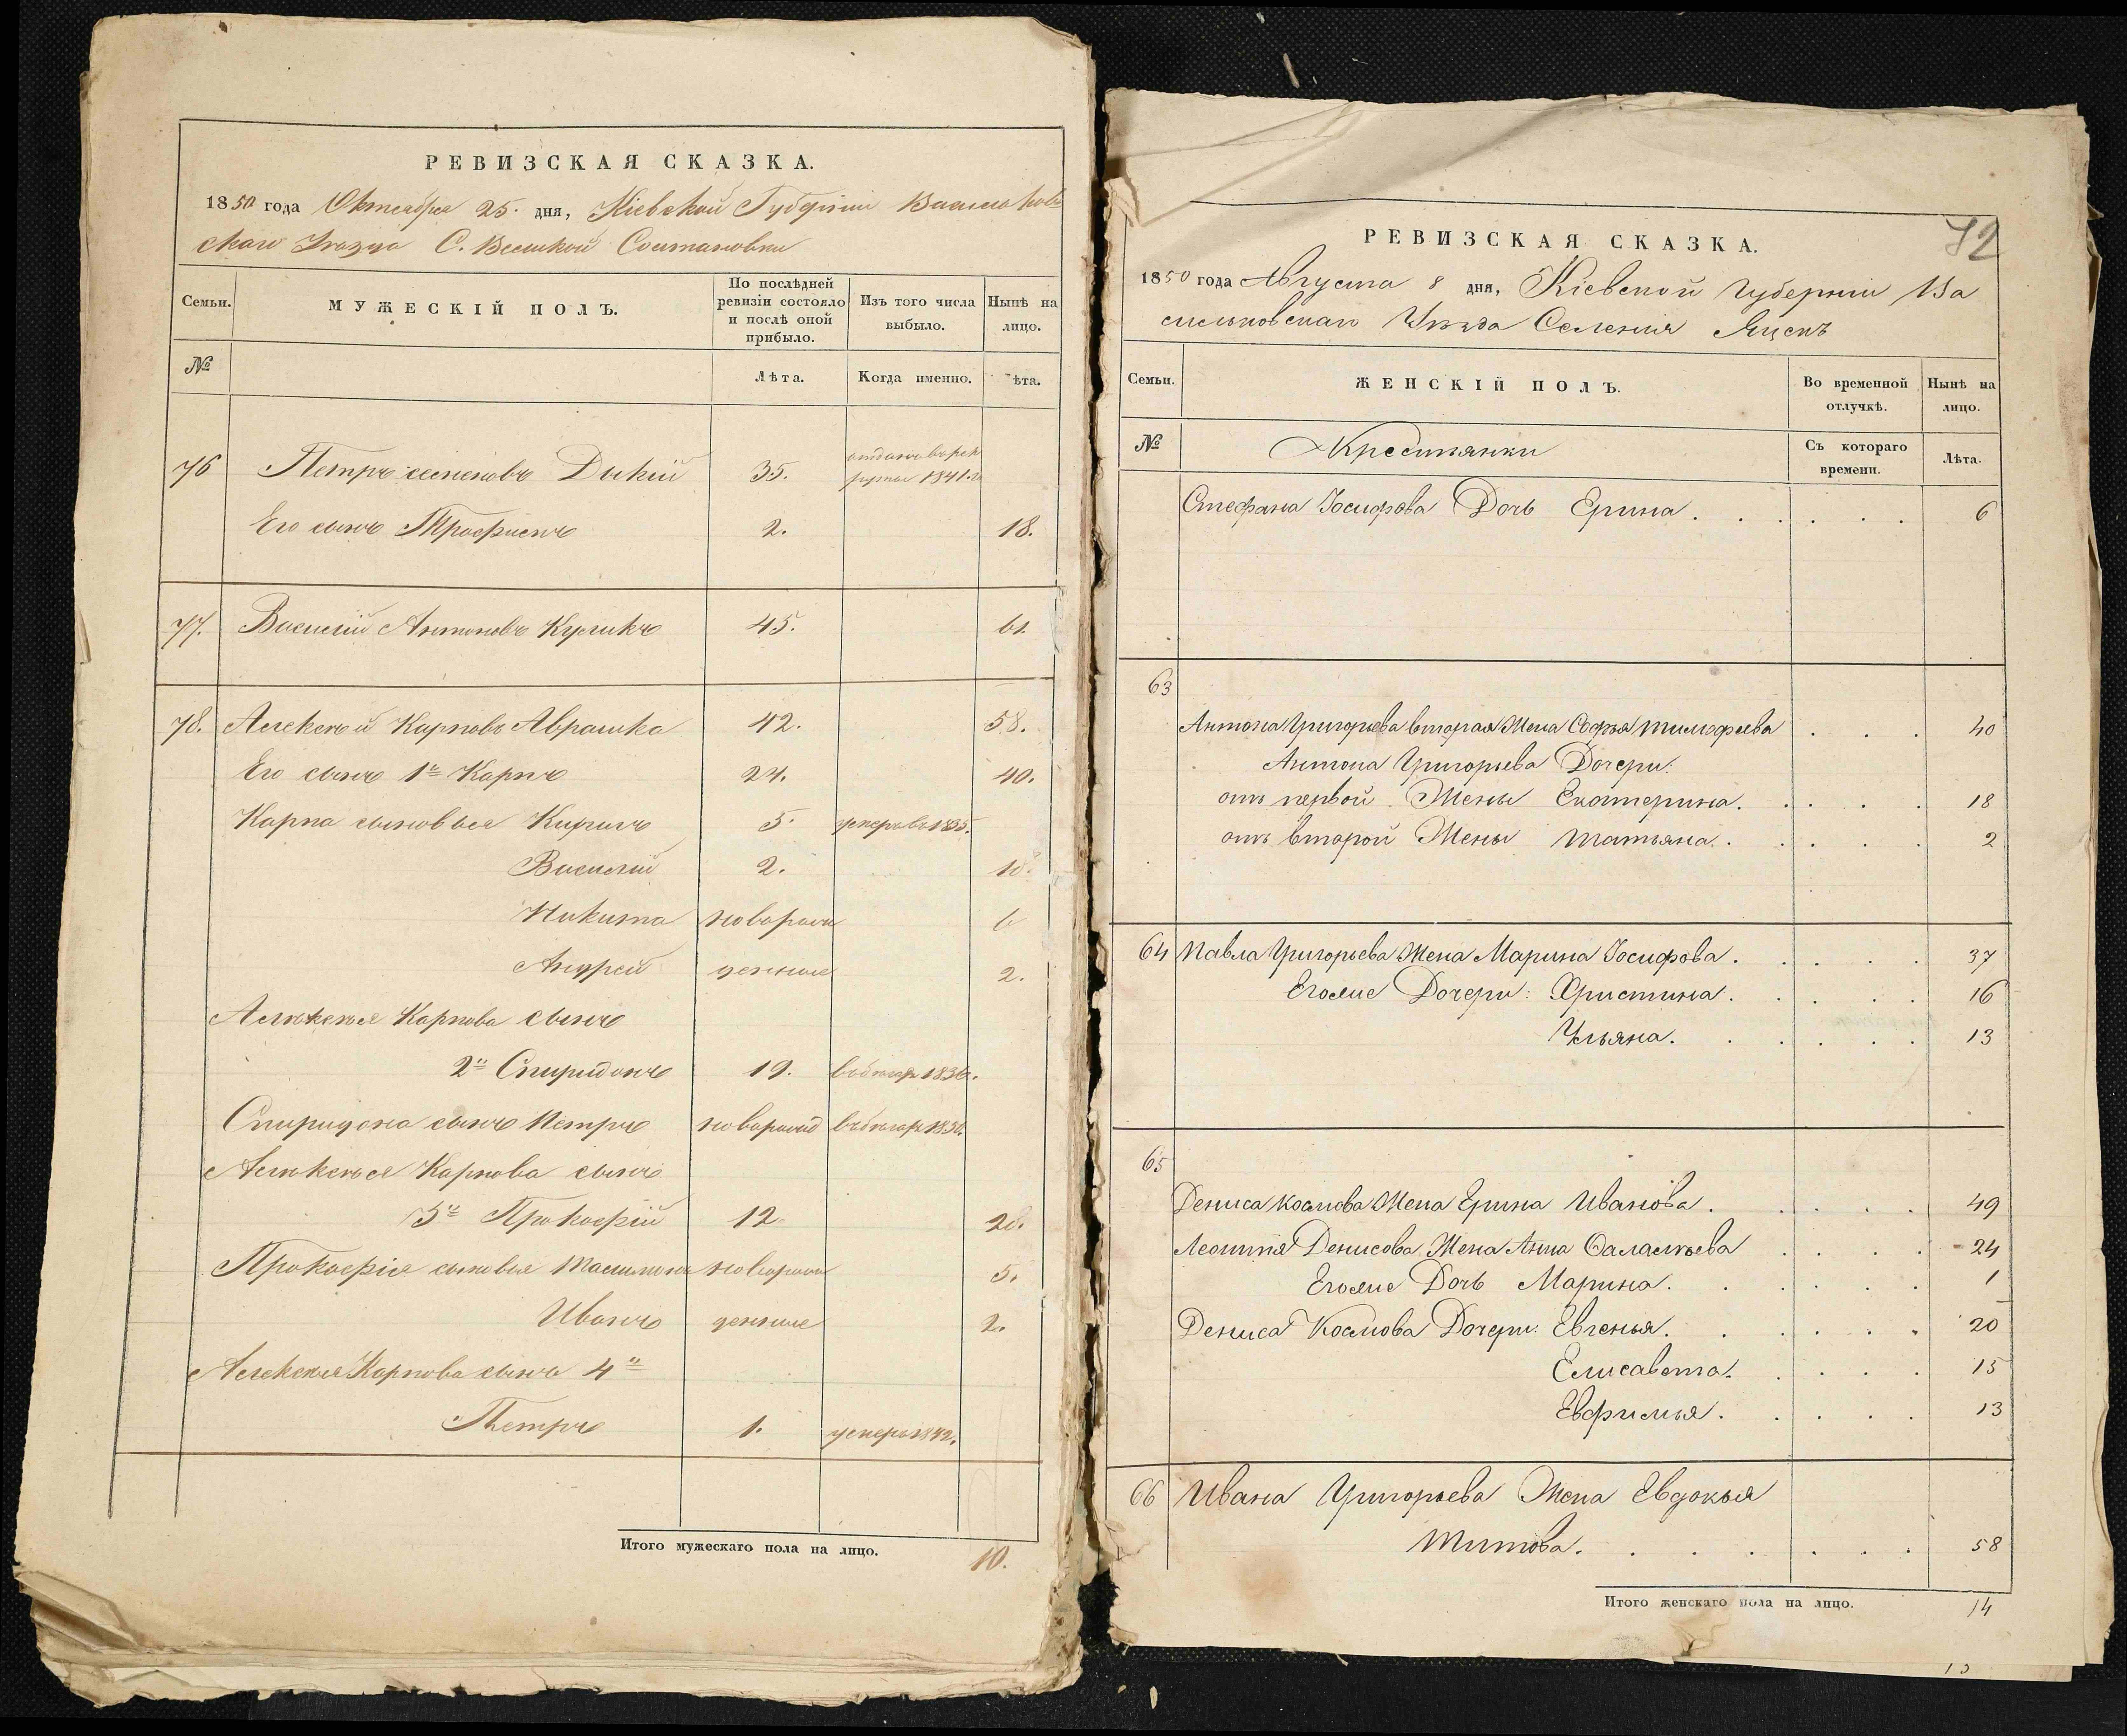 РЕВИЗСКАЯ СКАЗКА.
1850 года Октября 25. дня, Кіевской Губерніи Васильков
скаго Уезда С. Великой Солтановки
Семьи.
МУЖЕСКІЙ ПОЛЪ.
По послѣдней ревизіи состояло и послѣ оной прибыло.
Изъ того числа выбыло.
Нынѣ на лицо.
№
Лѣта.
Когда именно.
ѣта.
76 Петръ Семеновъ Дикій 35. отданъ в рек
руты 1841. г
Его сынъ Трофимъ 2. 18.
77. Василий Антоновъ Куликъ 45. 61.
78. Алексей Карповъ Аврашка 42. 58.
Его сынъ 1й Карпъ 24. 40.
Карпа сыновья Кирилъ 5. умеръ въ 1835.
Василий 2. 18.
Никита новорож 6
Андрей денные 2.
Алѣксѣя Карпова сынъ
2й Спиридонъ 19. въ бегах 1836.
Спиридона сынъ Петръ новорожд въ бѣгах 1850.
Алѣксѣя Карпова сынъ
3й Прокофій 12 28.
Прокофія сыновья новорож 5.
Иванъ денные 2.
Алексея Карпова сынъ 4й
Петръ 1. умеръ 1842.
Итого мужескаго пола на лицо. 10.
72
РЕВИЗСКАЯ СКАЗКА.
1850 года Августа 8 дня, Кіевской Губернии Ва
сильковскаго Уѣзда Селения Яцекъ
Семьи.
ЖЕНСКІЙ ПОЛЪ.
Во временной отлучкѣ.
Нынѣ на лицо.
№
Крестьянки
Съ котораго времени.
Лѣта.
Стефана Іосифова Дочь Ерина . . . . . . 6
63
Антона Григорьева вторая Жена Софья Тимофеева . . . 40
Антона Григорьева Дочери:
отъ первой Жены Екатерина. . . . . 18
отъ второй Жены Татьяна. . . . . 2
64 Павла Григорьева Жена Марина Іосифова . . . . . 37
Егожие Дочери: Христина. . . . . 16
Ульяна. . . . . . . 13
65
Дениса Космова Жена Ерина Иванова . . . . . 49
Леонтия Денисова Жена Анна . . . . 24
Егожие Дочь Марина. . . . . . 1
Дениса Космова Дочери: Евгенья. . . . . . 20
Елисавета. . . . . 15
Евфимья. . . . . . 13
66 Ивана Григорьева Жена Евдокья
Титова. . . . . . . 58
Итого женскаго пола на лицо. 14